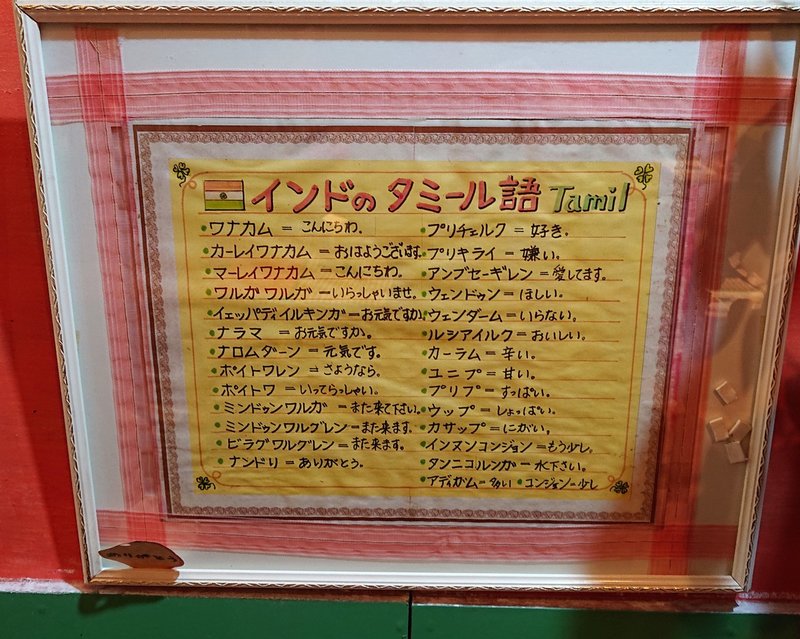 インドの タミール語 Tamil
・ワナカム = こんにちわ。
・カーレイワナカム = おはようございます。
・マーレイワナカム = こんにちわ。
・ワルガ ワルガ ーいらっしゃいませ。
・イェッパディ イルキンガーお元気ですか。
・ナラマ = お元気ですか。
・ナロムダーン = 元気です。
・ポイトワレン = さようなら。
・ポイトワ = いってらっしゃい。
・ミンドゥンワルガ ーまた来て下さい。
・ミンドゥンワルグレンーまた来ます。
・ビラグワルグレン=また来ます。
・ナンドリ = ありがとう。
・プリチェルク = 好き。
・プリキライ = 嫌い。
・アンブセーギレン = 愛してます。
・ウェンドゥン = ほしい。
・ウェンダーム = いらない。
・ルシアイルク = おいしい。
・カーラム = 辛い。
・ユニプ = 甘い。
・プリプ = すっぱい。
・ウップ = しょっぱい。
・カサップ = にがい。
・インヌンコンジョン = もう少し。
・タンニコルンガー 水下さい。
・アディガム=多い ・コンジョン=少し